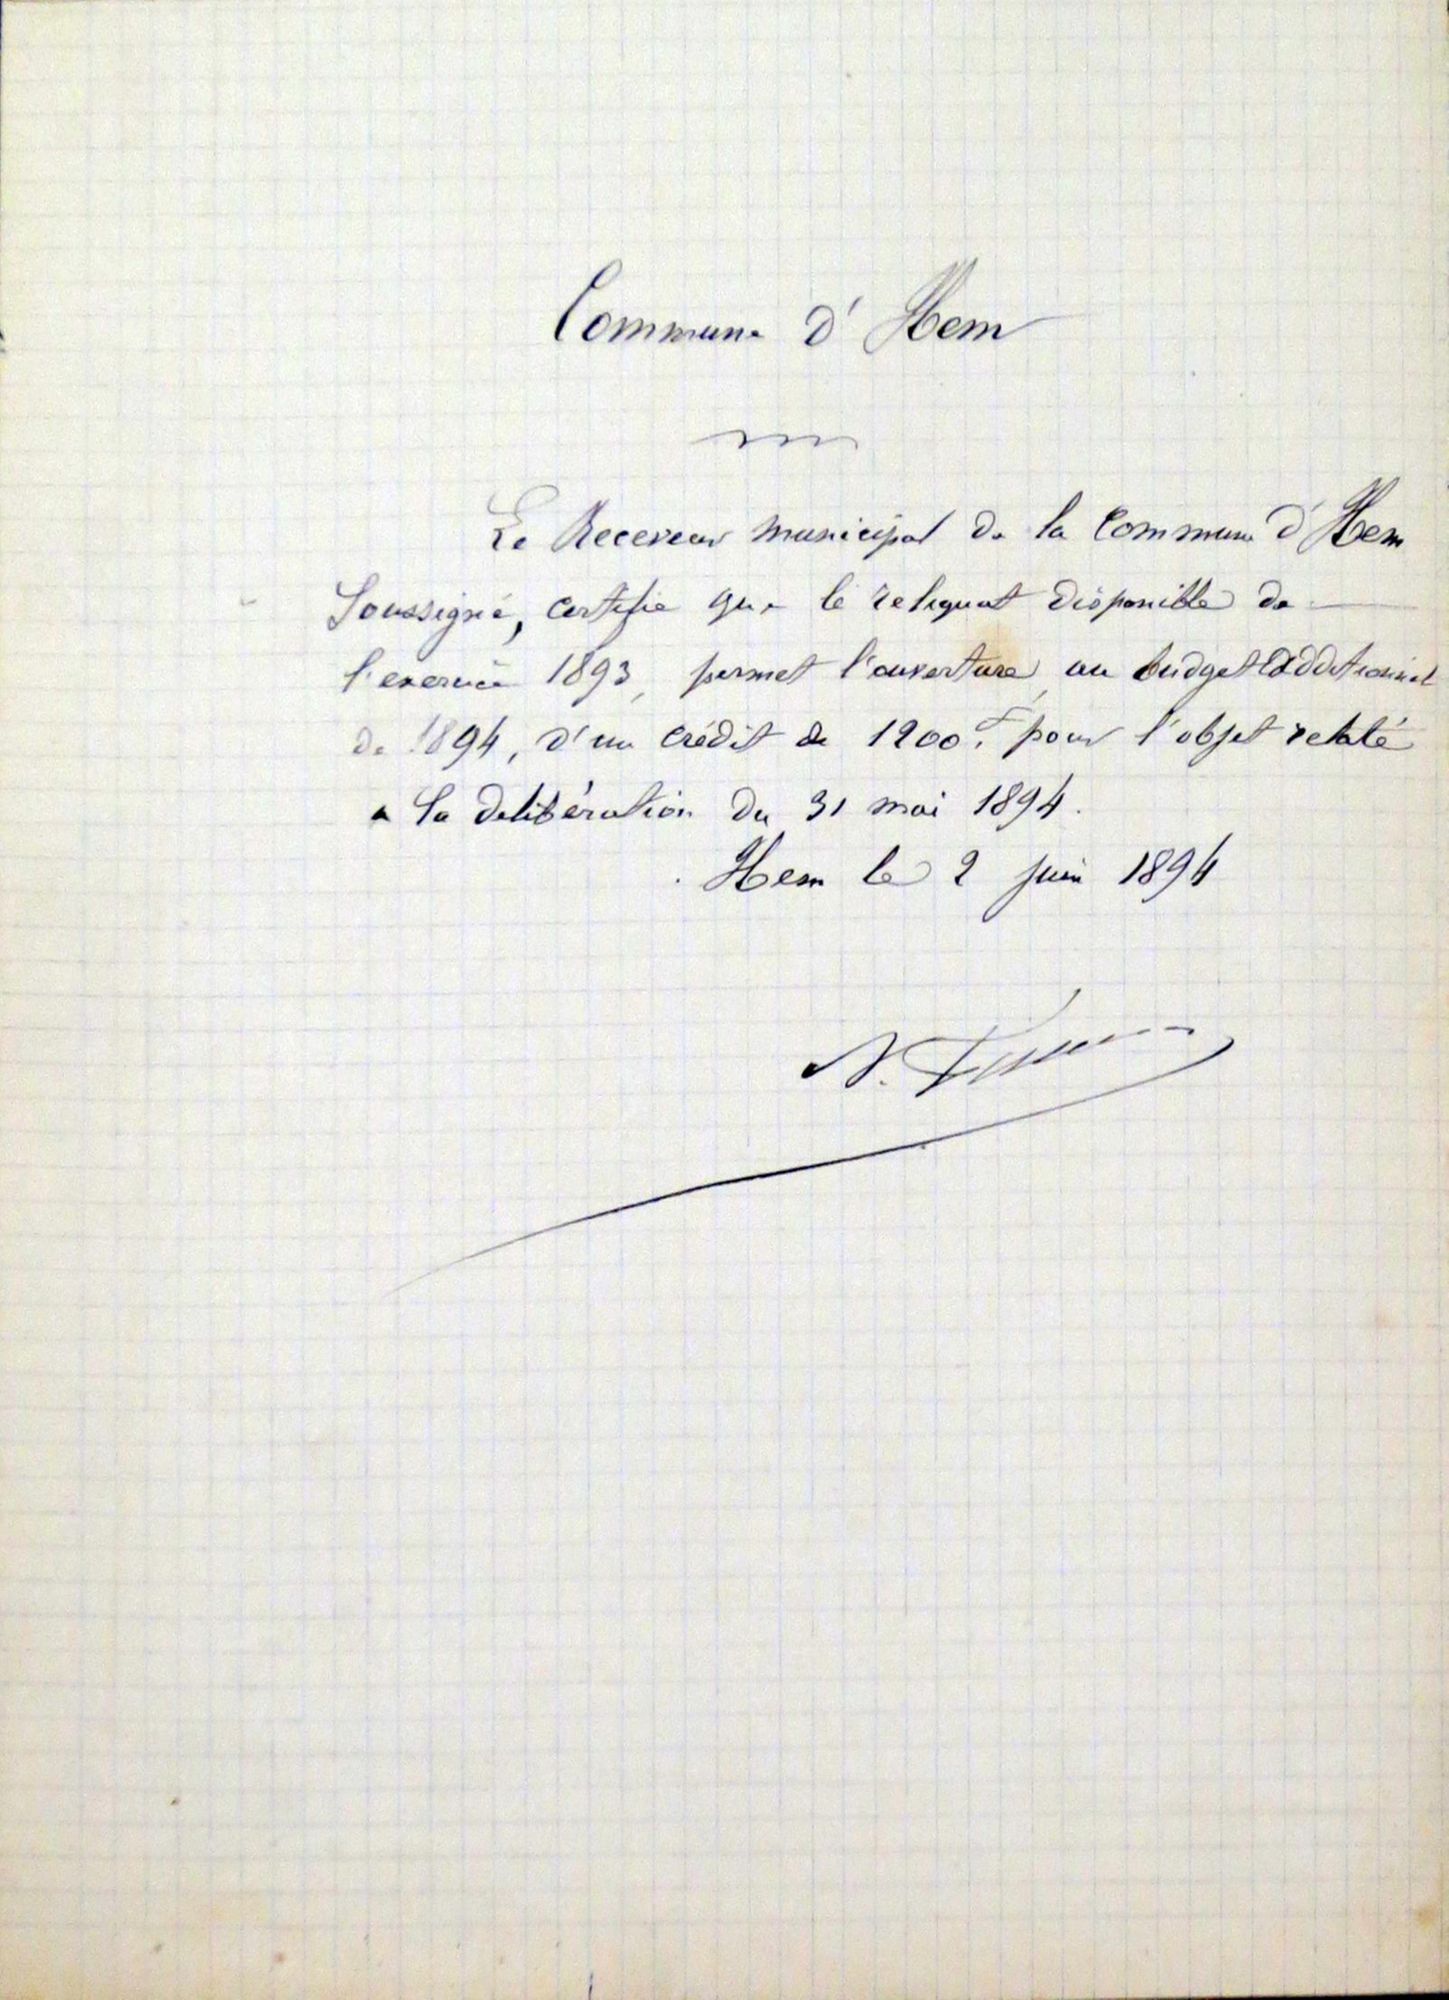 Commune d'Hem
Le Receveur municipal de la Commune d'Hem
Soussigné, certifie que le reliquat disponible de
l'exercice 1893, permet l'ouverture au budget additionnel
de 1894, d'un crédit de 1200 f. pour l'objet relaté
a la deliberation du 31 mai 1894.
Hem le 2 juin 1894